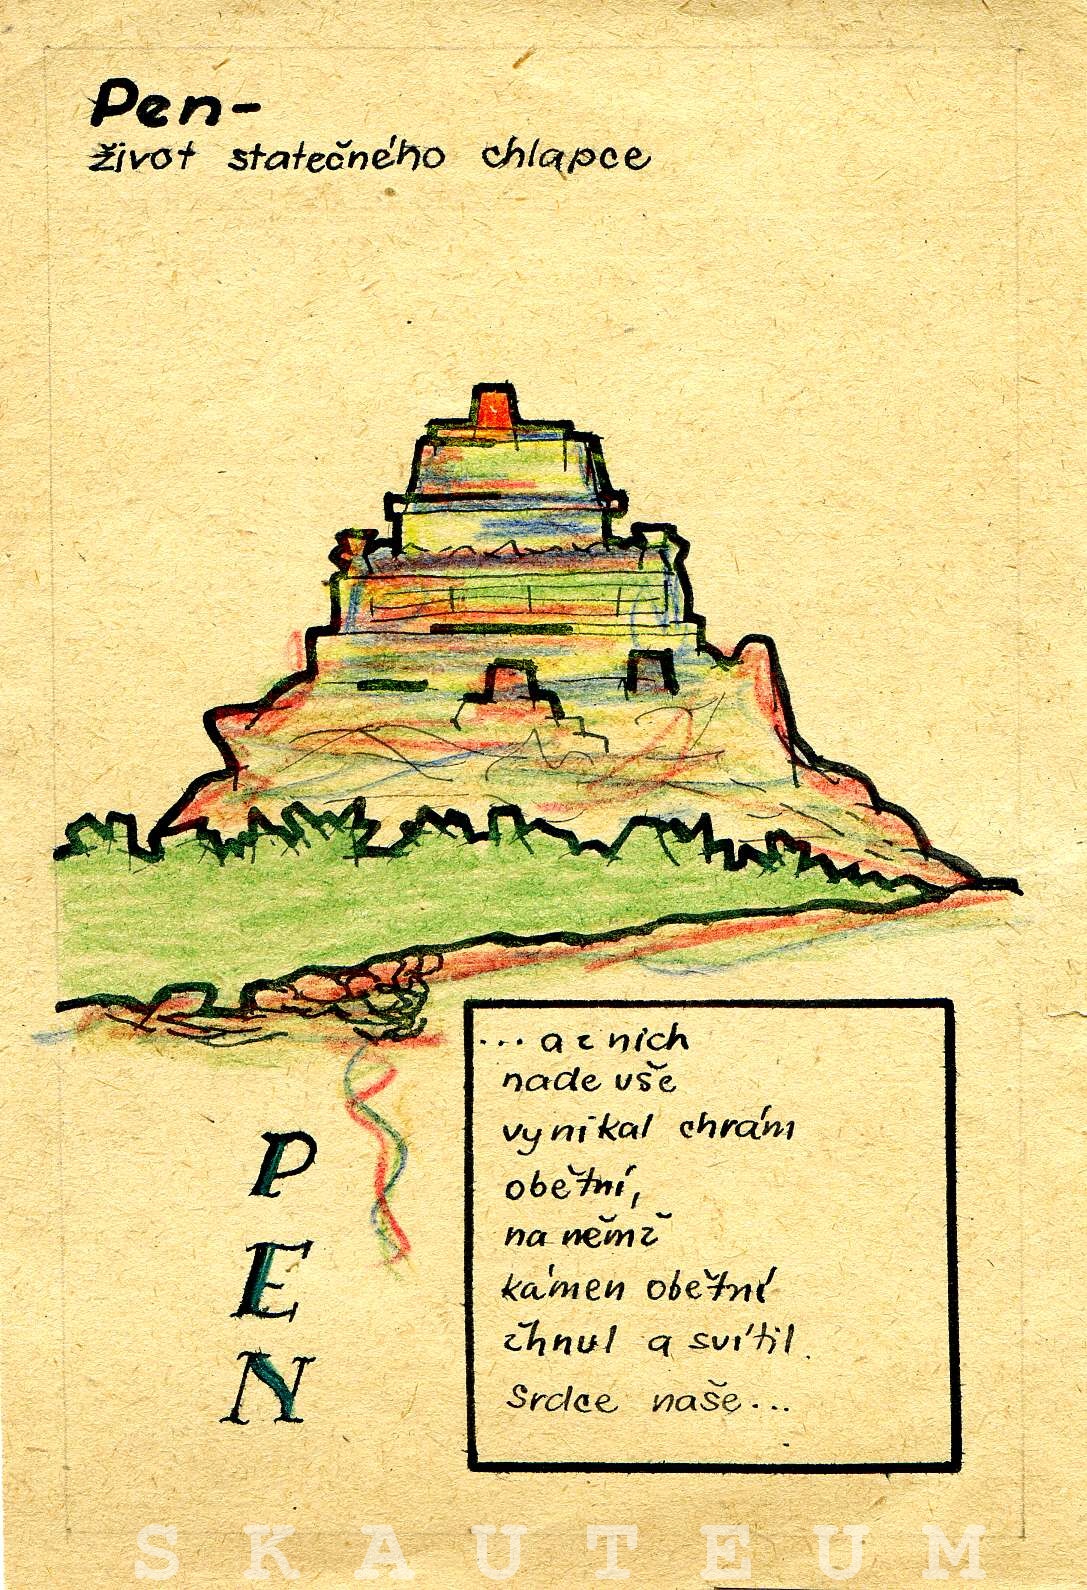 Pen-
život statečného chlapce
... a z nich
nade vše
vynikal chrám
obětní,
na němž
kámen obětní
žhnul a svítil.
Srdce naše...
P
E
N
SKAUTEUM